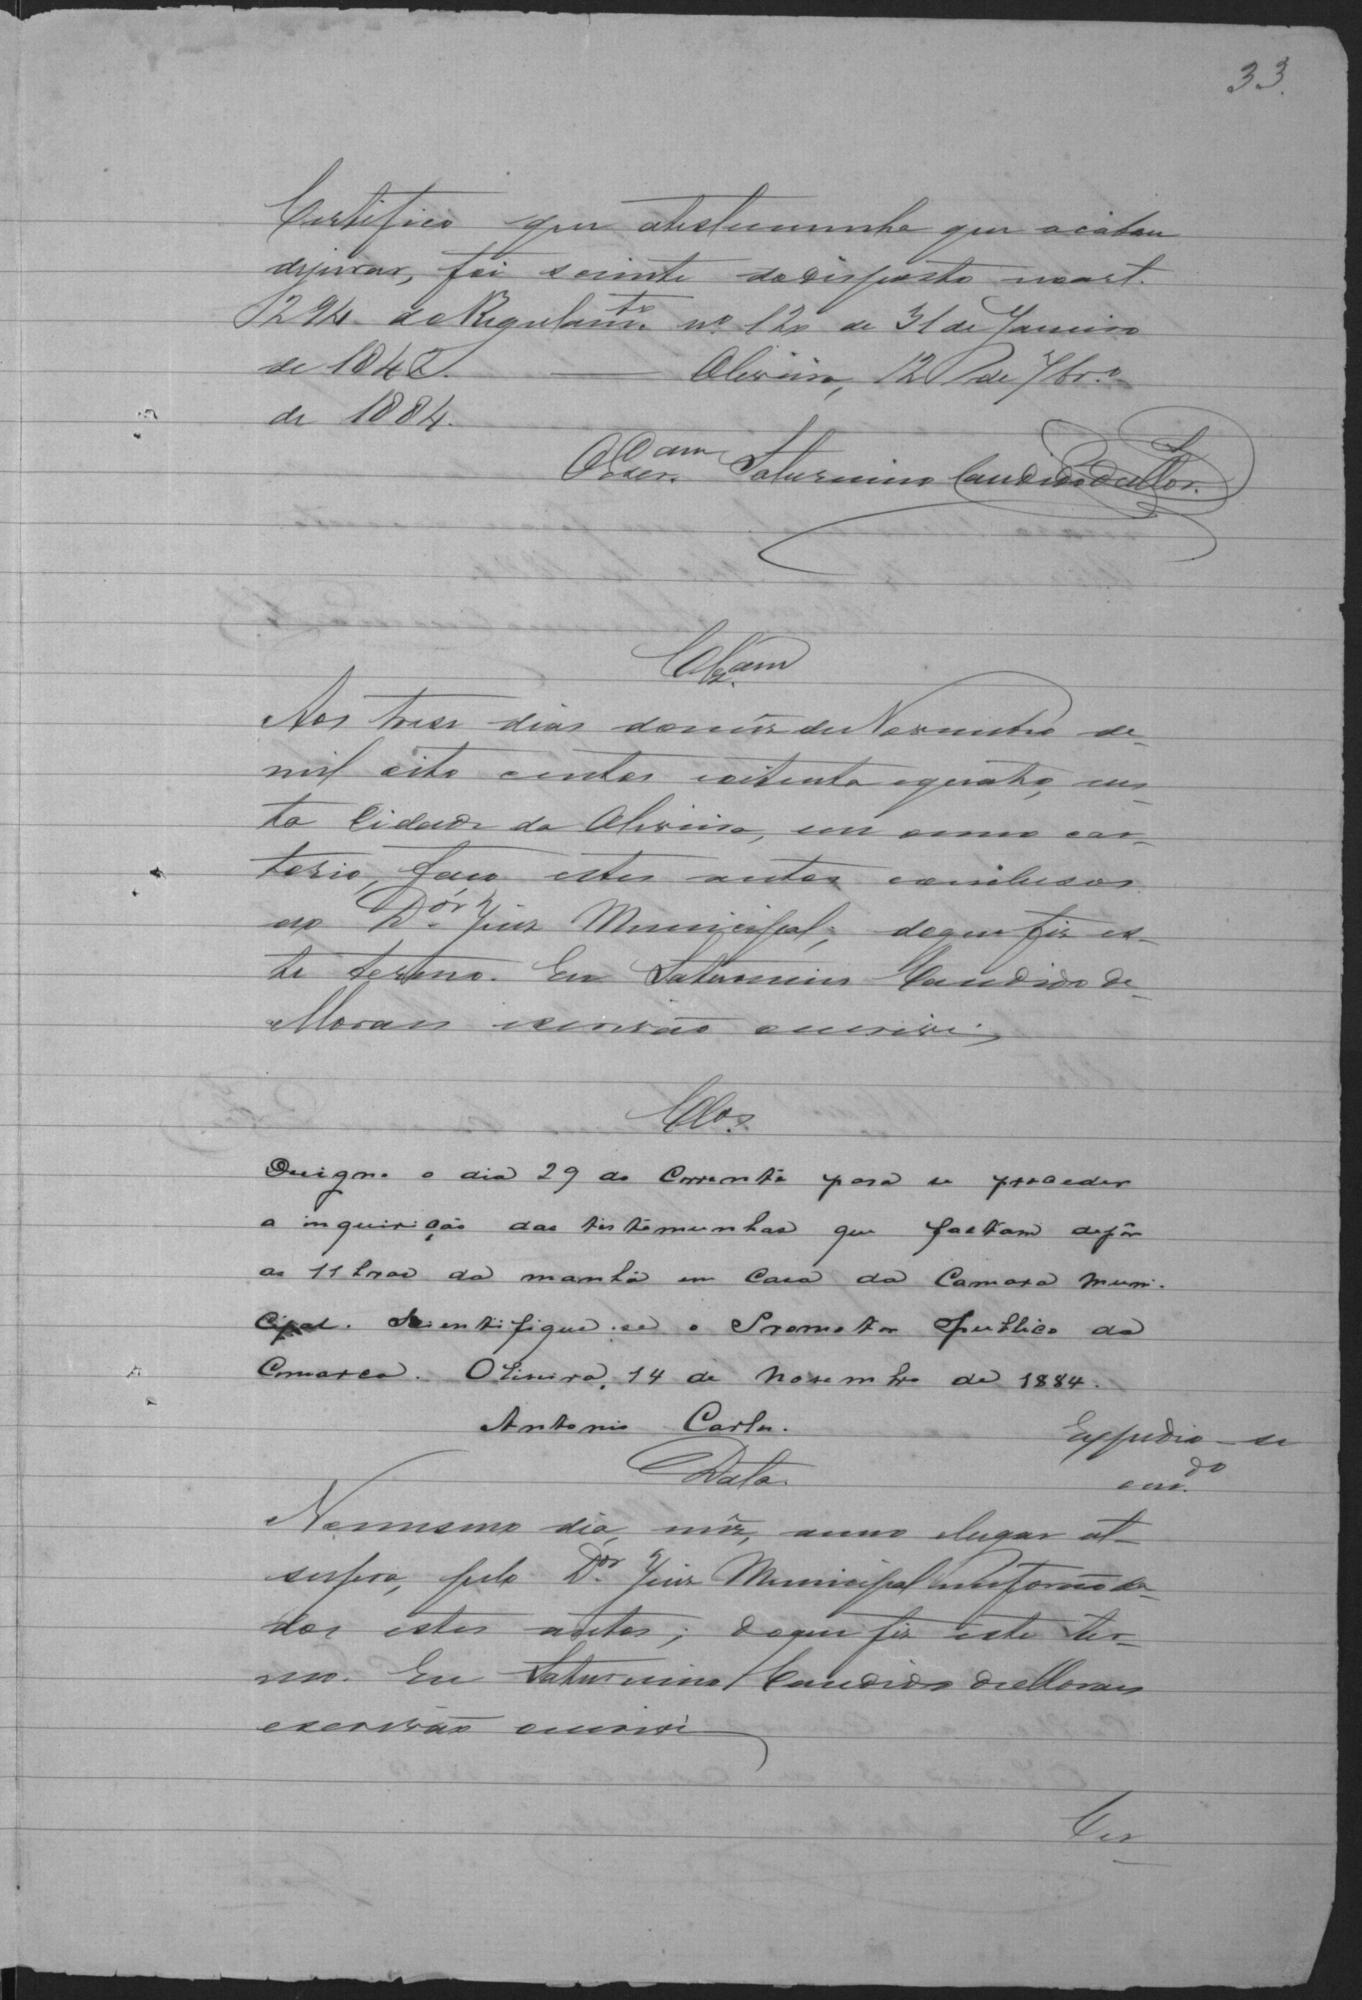 33.
Certifico que atestemunha que acabou
dejurar, foi sciente dodisposto noart.
294 do Regulamto nº 120 de 31 de Janeiro
de 1842. Oliveira, 12 de 7bro
de 1884.
O Escram Saturnino Candido de Mor.
Clsam
Aos tres dias domez de Novembro de
mil oito centos eoitenta equatro, nes-
ta Cidade da Oliveira, em meu car-
torio, faço estes autos conclusos
ao Dor Juiz Municipal; doque fiz es-
te termo. Eu Saturnino Candido de
Moraes escrivão escrevi;
Clos.
Designo o dia 29 do corrente para se proceder
a inquirição das testemunhas que faltam depôr
as 11 horas da manhã em casa da Camara Muni-
cipal. Scientifique-se o Promotor Publico da
Comarca. Oliveira, 14 de Novembro de 1884.
Antonio Carlos.
Expedio-se
Data.
Nomesmo dia, mez, anno elugar
supra, pelo Dor Juiz Municipal
dos estes autos; doque fiz este ter-
mo. Eu Saturnino Candido de Moraes
escrivão escrevi
Cer-